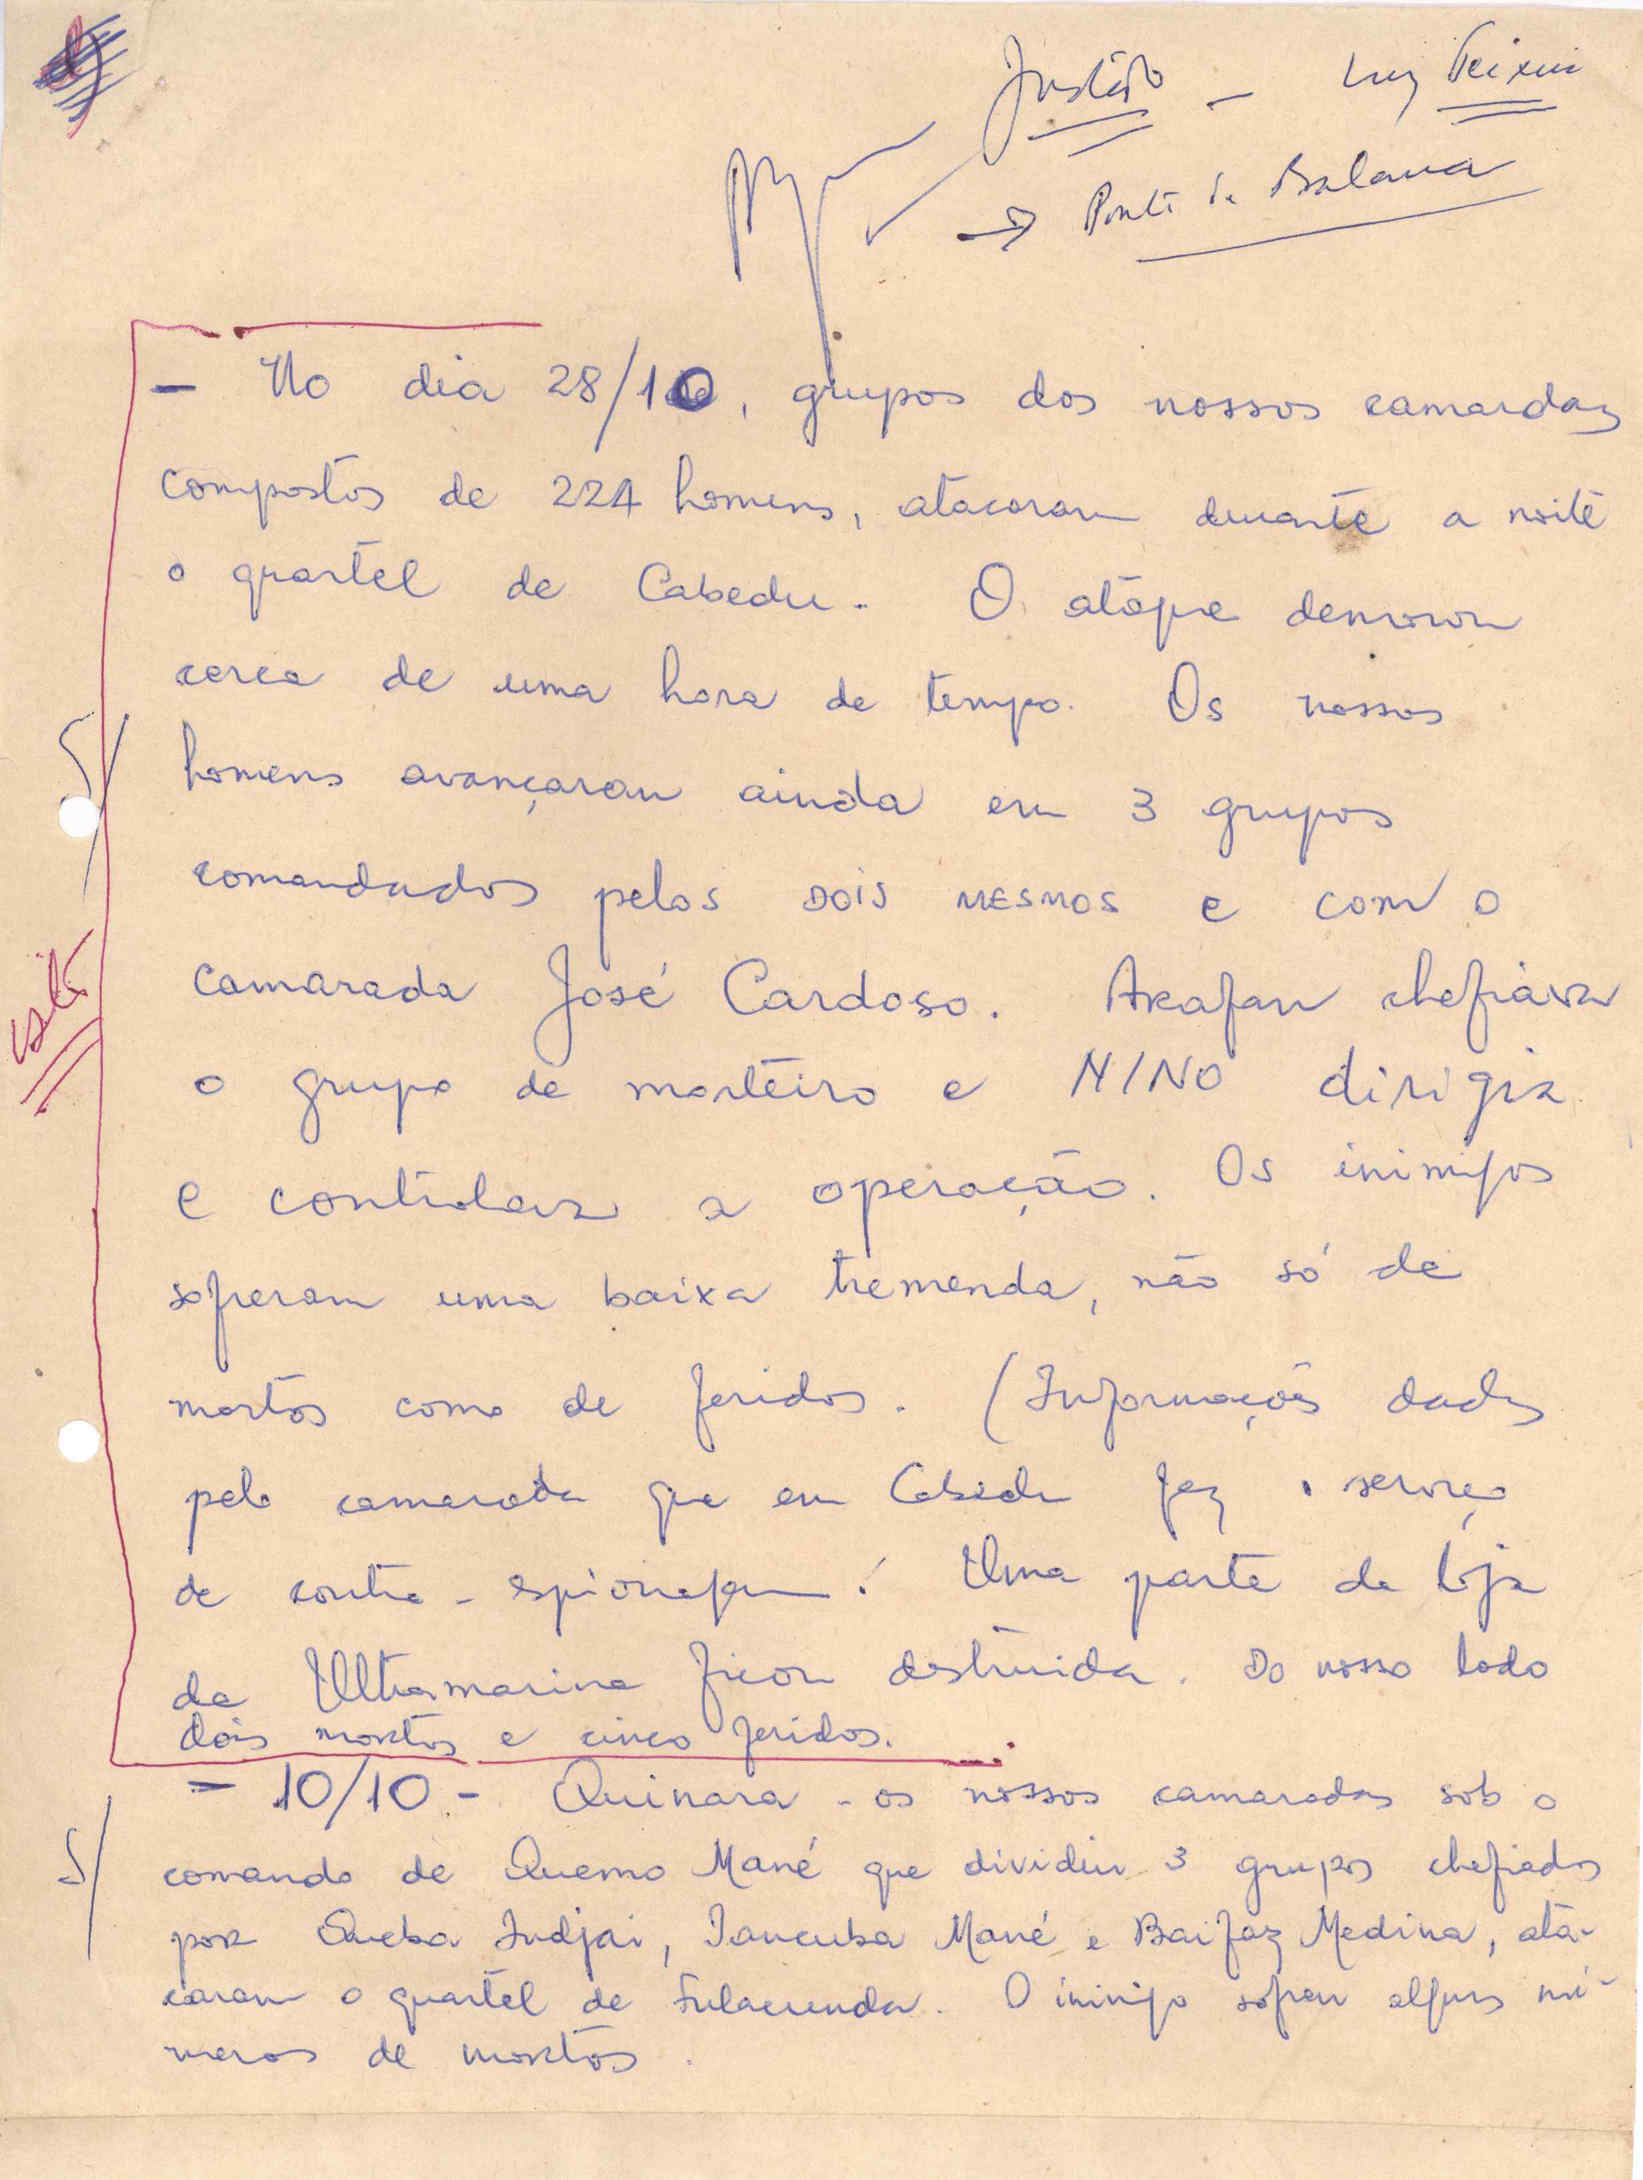 Luiz Teixeira
→ Ponte de Balana
- No dia 28/10, grupos dos nossos camardas
compostos de 224 homens, atacaram durante a noite
o quartel de Cabedu. O atáque demorou
cerca de uma hora de tempo. Os nossos
homens avançaram ainda em 3 grupos
comandados pelos DOIS MESMOS e com o
camarada José Cardoso. Arafan chefiava
o grupo de morteiro e NINO dirigia
e controlava a operação. Os inimigos
sofreram uma baixa tremenda, não só de
mortos como de feridos. (Informações dadas
pelo camarada que em Cabedu faz o serviço
de contra-espionagem! Uma parte da loja
da Ultramarina ficou destruida. Do nosso lado
dois mortos e cinco feridos.
isto
- 10/10 - Quinara - os nossos camaradas sob o
comando de Quemo Mané que dividiu 3 grupos chefiados
por Queba Indjai, Iancuba Mané e Baifaz Medina, ata-
caram o quartel de Fulacunda. O inimigo sofreu alguns nú-
meros de mortos.